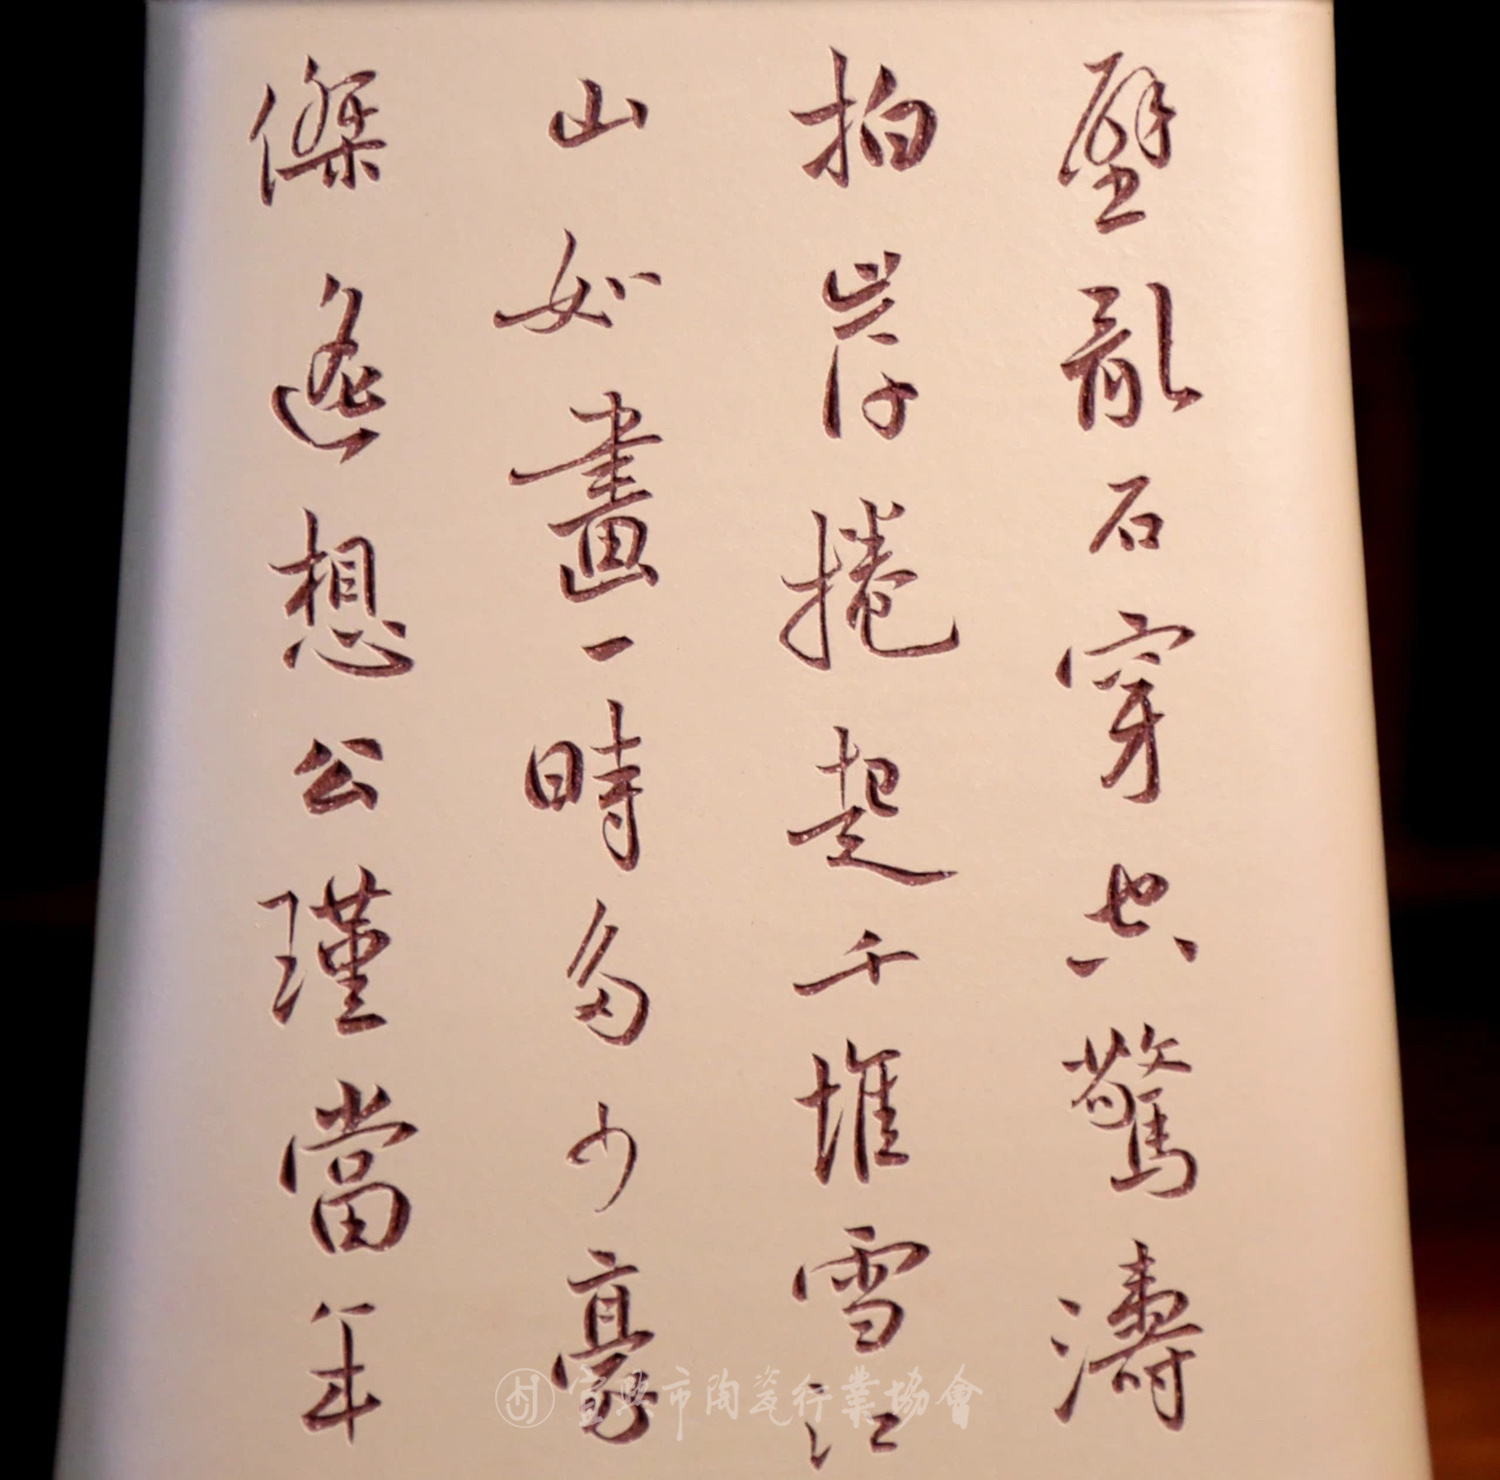 壁亂石穿空驚濤
拍岸捲起千堆雪江
山如畫一時多少豪
傑遙想公瑾當年
宜興市陶瓷行業協會